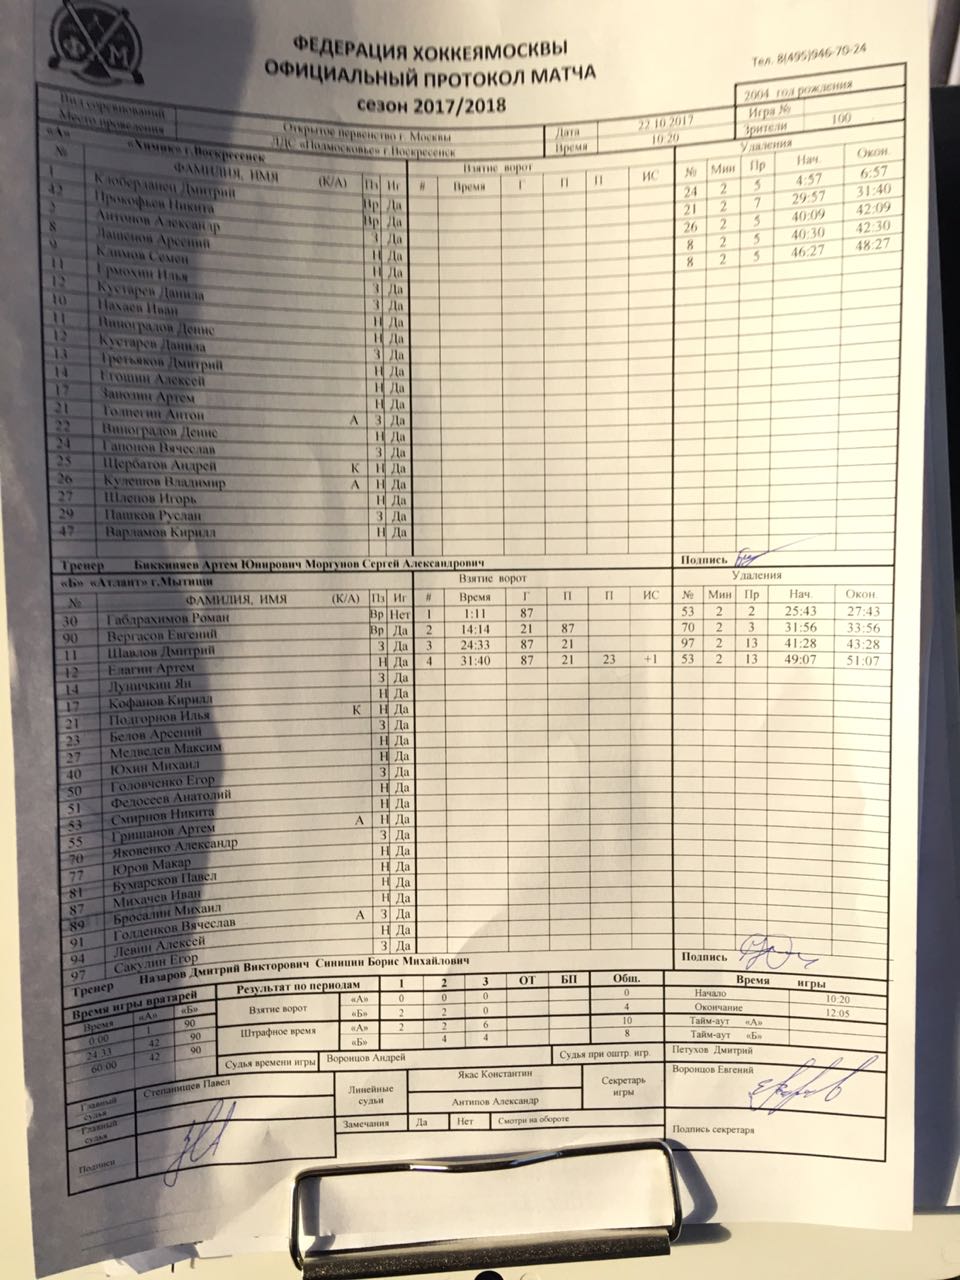 ФЕДЕРАЦИЯ ХОККЕЯМОСКВЫ
ОФИЦИАЛЬНЫЙ ПРОТОКОЛ МАТЧА
сезон 2017/2018
Тел. 8(495)946-70-24
2004 год рождения
Вид соревнований Открытое первенство г. Москвы Дата 22 10.2017 Игра №
Место проведения ЛДС «Подмосковье» г.Воскресенск Время 10:20 Зрители 100
«А» «Химик» г.Воскресенск Взятие ворот Удаления
№ ФАМИЛИЯ, ИМЯ (К/А) Пз Иг # Время Г П П ИС № Мин Пр Нач. Окон.
1 Клоберданец Дмитрий Вр Да 24 2 5 4:57 6:57
42 Прокофьев Никита Вр Да 21 2 7 29:57 31:40
2 Антонов Александр З Да 26 2 5 40:09 42:09
8 Лашенов Арсений Н Да 8 2 5 40:30 42:30
9 Климов Семен Н Да 8 2 5 46:27 48:27
11 Ермохин Илья З Да
12 Кустарев Данила З Да
10 Нахаев Иван Н Да
11 Виноградов Денис Н Да
12 Кустарев Данила З Да
13 Третьяков Дмитрий Н Да
14 Егошин Алексей Н Да
17 Занозин Артем Н Да
21 Толпегин Антон А З Да
22 Виноградов Денис Н Да
24 Гапонов Вячеслав З Да
25 Щербатов Андрей К Н Да
26 Кулешов Владимир А Н Да
27 Шлепов Игорь Н Да
29 Пашков Руслан З Да
47 Варламов Кирилл Н Да
Тренер Биккиняев Артем Юнирович Моргунов Сергей Александрович Подпись
«Б» «Атлант» г.Мытищи Взятие ворот Удаления
№ ФАМИЛИЯ, ИМЯ (К/А) Пз Иг # Время Г П П ИС № Мин Пр Нач. Окон.
30 Габдрахимов Роман Вр Нет 1 1:11 87 53 2 2 25:43 27:43
90 Вергасов Евгений Вр Да 2 14:14 21 87 70 2 3 31:56 33:56
11 Шавлов Дмитрий З Да 3 24:33 87 21 97 2 13 41:28 43:28
12 Елагин Артем Н Да 4 31:40 87 21 23 +1 53 2 13 49:07 51:07
14 Луничкин Ян З Да
17 Кофанов Кирилл Н Да
21 Подгорнов Илья К Н Да
23 Белов Арсений З Да
27 Медведев Максим Н Да
40 Юхин Михаил Н Да
50 Головченко Егор З Да
51 Федосеев Анатолий Н Да
53 Смирнов Никита Н Да
55 Гришанов Артем А Н Да
70 Яковенко Александр З Да
77 Юров Макар Н Да
81 Бумарсков Павел Н Да
87 Михачев Иван Н Да
89 Бросалин Михаил Н Да
91 Голденков Вячеслав А З Да
94 Левин Алексей Н Да
97 Сакулин Егор З Да
Тренер Назаров Дмитрий Викторович Синицин Борис Михайлович Подпись
Время игры вратарей Результат по периодам 1 2 3 ОТ БП Общ. Время игры
Время «А» «Б» Взятие ворот «А» 0 0 0 0 Начало 10:20
0:00 1 90 «Б» 2 2 0 4 Окончание 12:05
24:33 42 90 Штрафное время «А» 2 2 6 10 Тайм-аут «А»
60:00 42 90 «Б» 4 4 8 Тайм-аут «Б»
Судья времени игры Воронцов Андрей Судья при оштр. игр. Петухов Дмитрий
Главный судья Степанищев Павел Линейные судьи Якас Константин Секретарь игры Воронцов Евгений
Главный судья Антипов Александр
Замечания Да Нет Смотри на обороте Подпись секретаря
Подписи